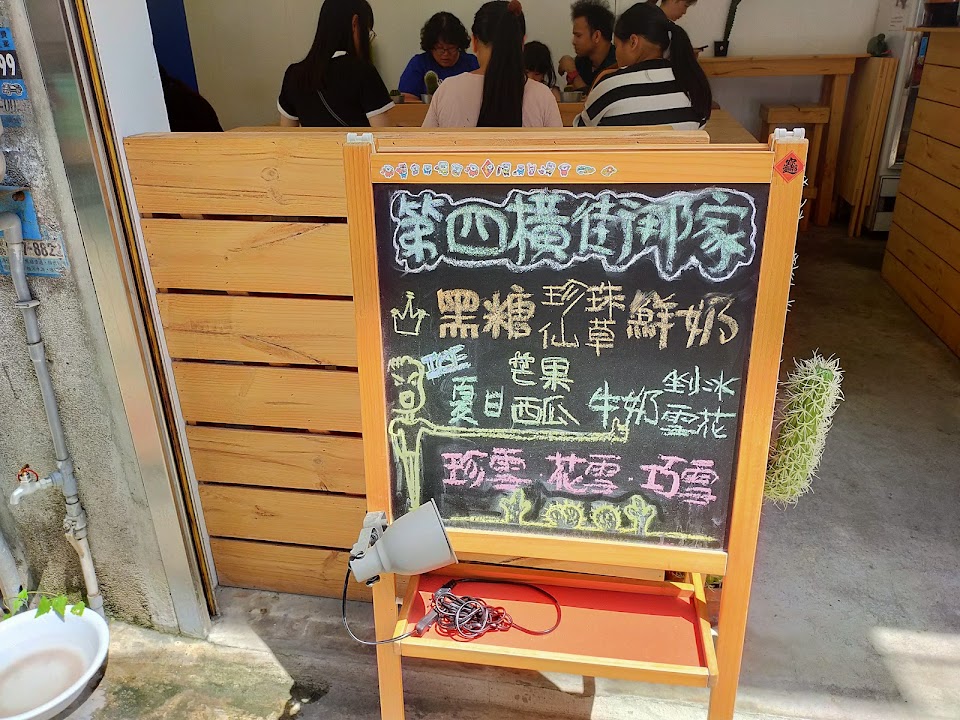 第四橫街那家
黑糖珍珠仙草鮮奶
夏日芒果西瓜牛奶剉冰雪花
珍雪·花雪·巧雪
99
7-882